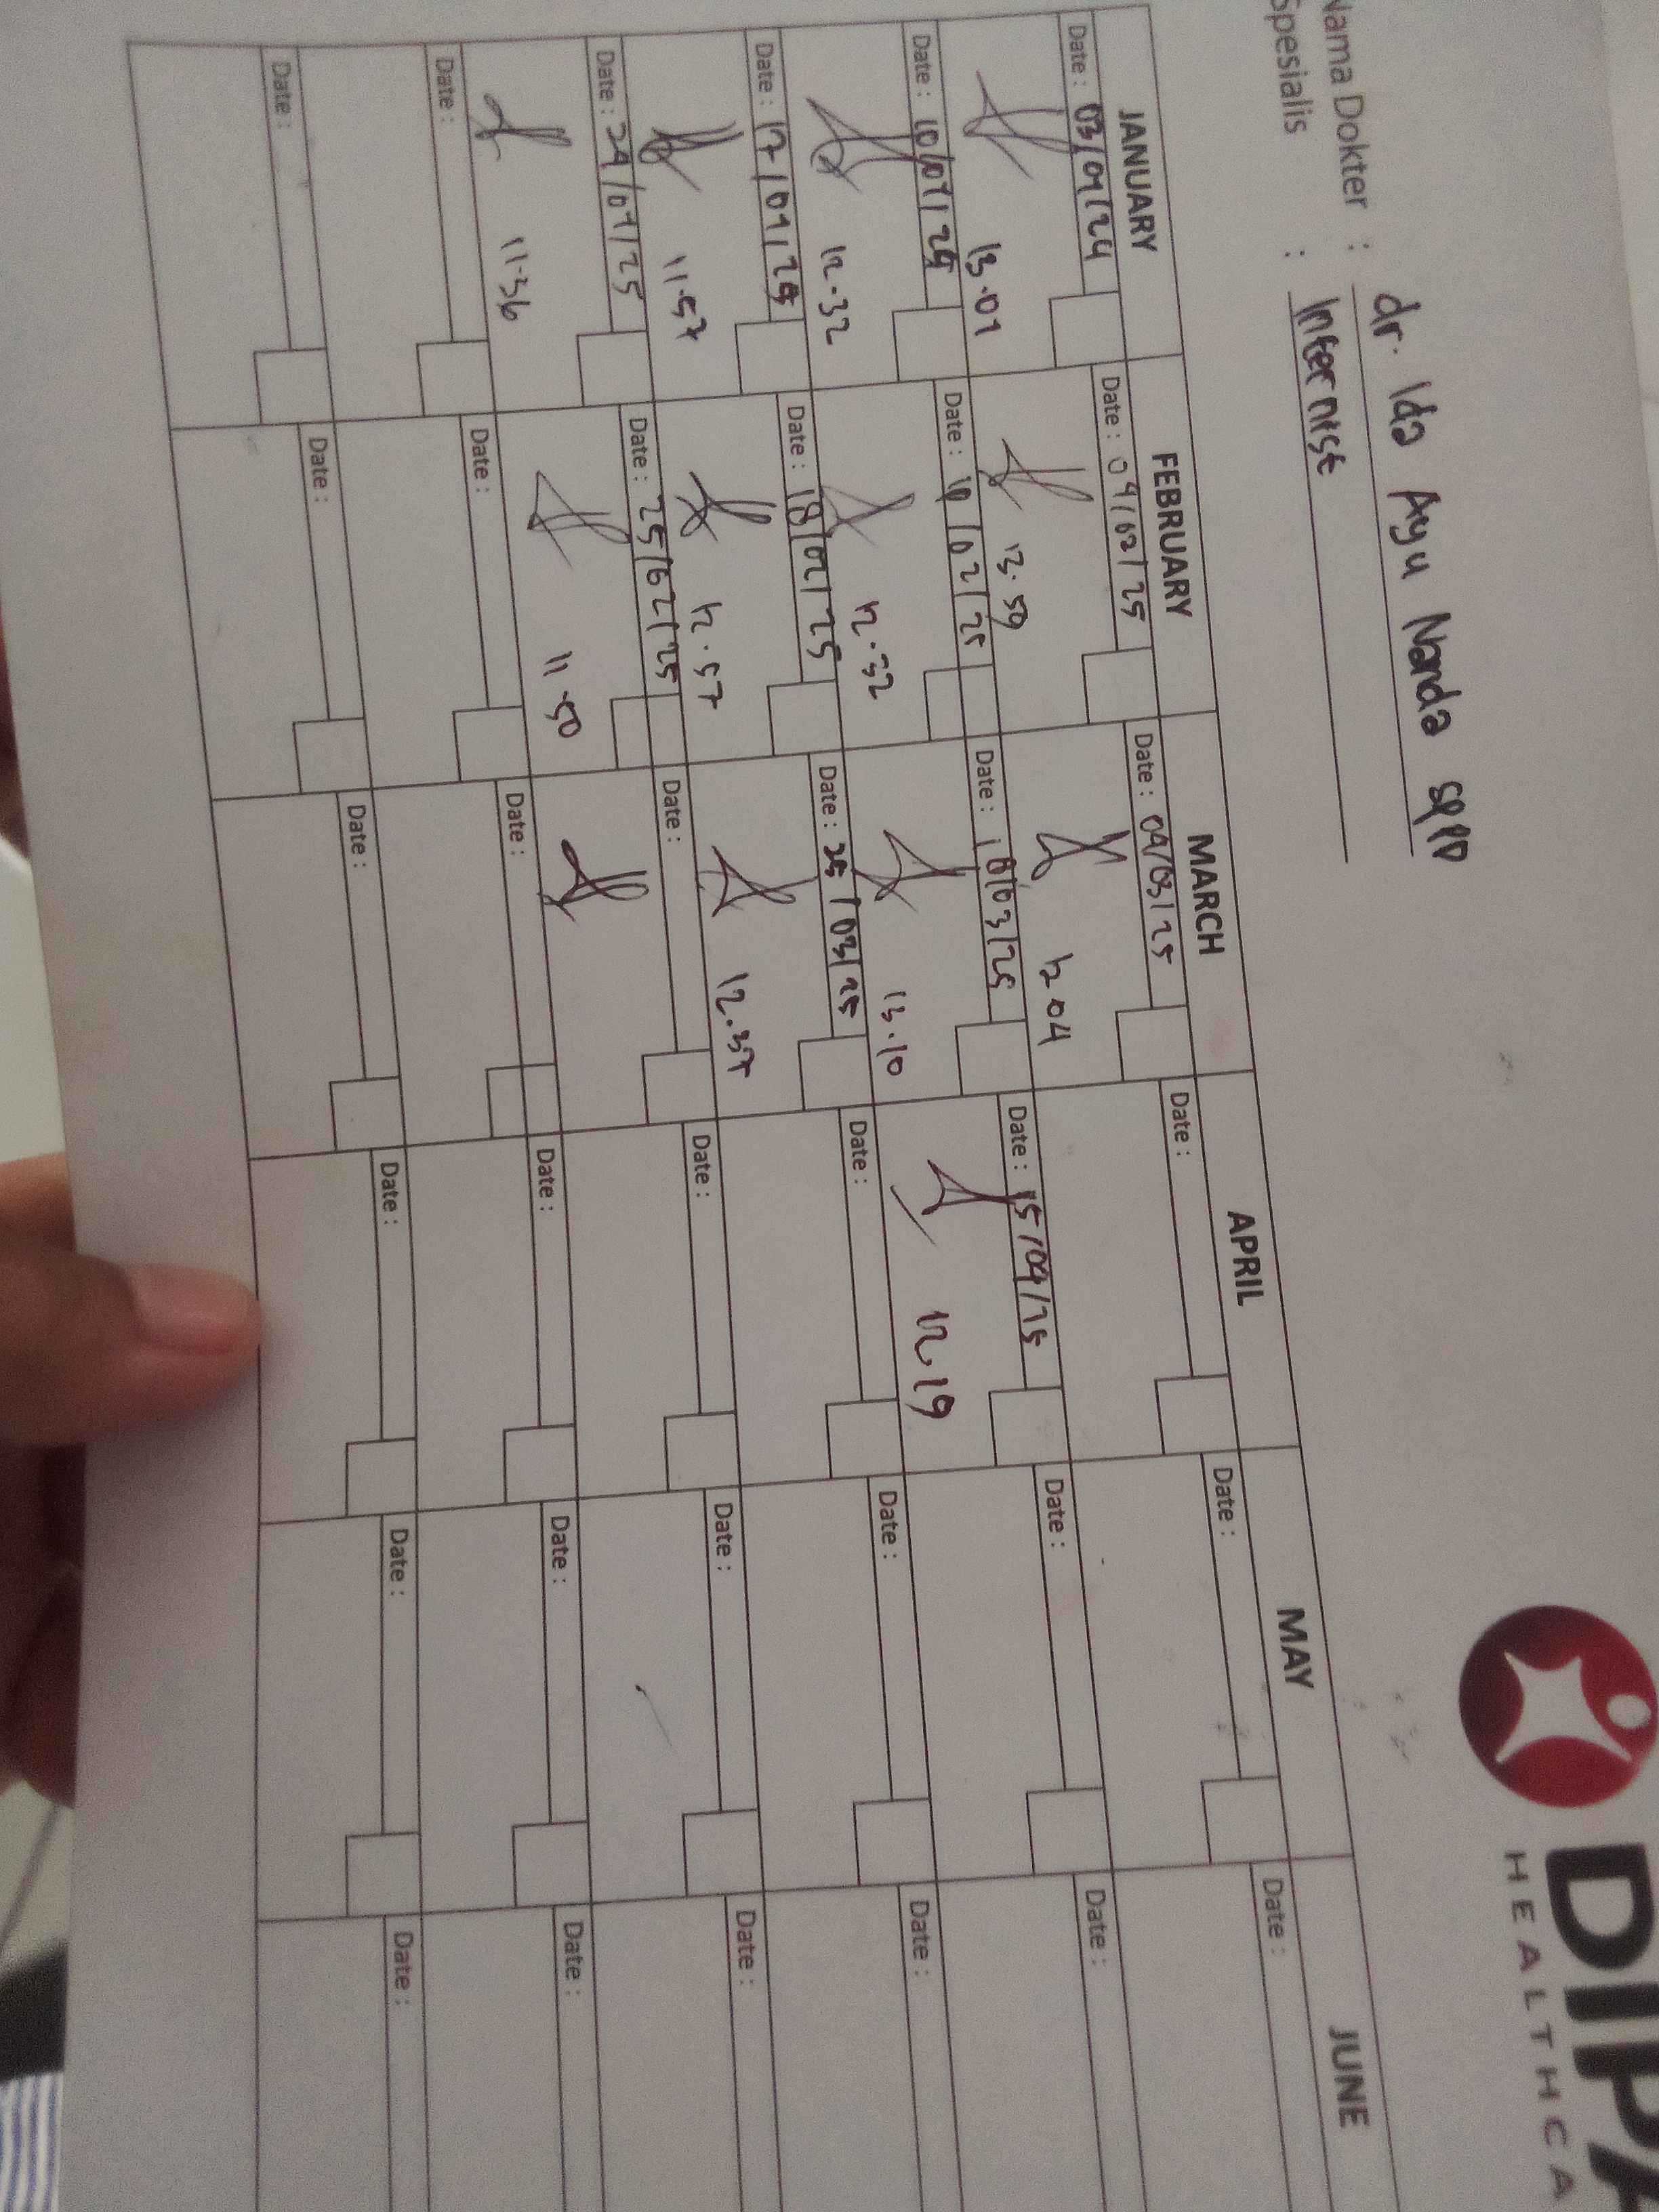 DIPA
HEALTHCA
Nama Dokter : dr. Ida Ayu Nanda SpPD
Spesialis : Internist
JANUARY FEBRUARY MARCH APRIL MAY JUNE
Date : 03/01/24 Date : 04/02/25 Date : 04/03/25 Date : Date : Date :
13.01 13.59 12 04
Date : 10/01/24 Date : 10/02/25 Date : 18/03/25 Date : 15/04/25 Date : Date :
12.32 12.32 13.10 12.19
Date : 17/01/25 Date : 18/02/25 Date : 25/03/25 Date : Date : Date :
11.57 12.57 12.37
Date : 24/01/25 Date : 25/02/25 Date : Date : Date : Date :
11.36 11.50
Date : Date : Date : Date : Date : Date :
Date : Date : Date : Date : Date : Date :